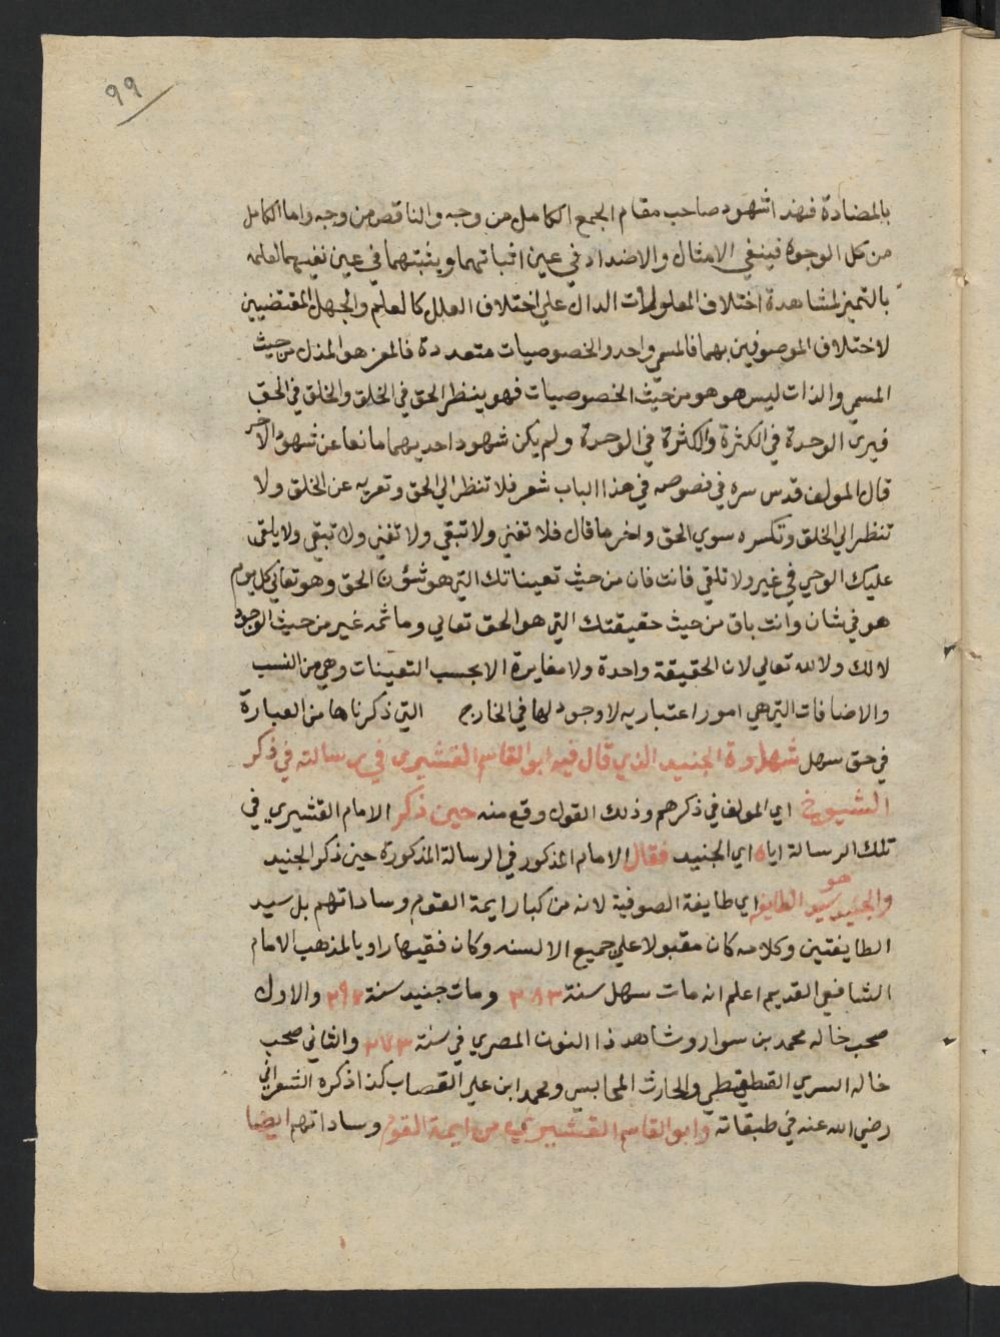 ٩٩
بالمضادة فهذا شهود صاحب مقام الجمع الكامل من وجه والناقص من وجه واما الكامل
من كل الوجوه فينفي الامثال والاضداد في عين اثباتهما ويثبتهما في عين نفيهما لعلمه
بالتميز لمشاهدة اختلاف المعلولات الدال على اختلاف العلل كالعلم والجهل المقتضيين
لاختلاف الموصوفين بهما فالمسمي واحد والخصوصيات متعددة فالمعز هو المذل من حيث
المسمي والذات ليس هو هو من حيث الخصوصيات فهو ينظر الحق في الخلق والخلق في الحق
فيرى الوحدة في الكثرة والكثرة في الوحدة ولم يكن شهود احديهما مانعا عن شهود الاخر
قال المولف قدس سره في فصوصه في هذا الباب شعر فلا تنظر الي الحق وتعريه عن الخلق ولا
تنظر الي الخلق وتكسوه سوي الحق واخر ما قال فلا تفني ولا تبقي ولا تفني ولا تبقي ولا يلقى
عليك الوحي في غير ولا تلقي فانت فان من حيث تعيناتك التي هو شؤن الحق وهو تعالي كل يوم
هو في شان وانت باق من حيث حقيقتك التي هو الحق تعالي وما ثمه غير من حيث الوجود
لا لك ولا لله تعالي لان الحقيقة واحدة ولا مغايرة الا بحسب التعينات وهي من النسب
والاضافات التي هي امور اعتباريه لا وجود لها في الخارج التي ذكرناها من العبارة
في حق سهل الجنيد الذي قال فيه ابو القاسم القشيري في رسالته في ذكر
الشيوخ اي المولف في ذكرهم وذلك القول وقع منه حين ذكر الامام القشيري في
تلك الرسالة اياه اي الجنيد فقال الامام المذكور في الرسالة المذكورة حين ذكر الجنيد
والجنيد هو سيد الطايفه اي طايفة الصوفية لانه من كبار ايمة القوم وساداتهم بل سيد
الطايفتين وكلامه كان مقبولا علي جميع الالسنه وكان فقيها راويا لمذهب الامام
الشافعي القديم اعلم انه مات سهل سنة ٢٨٣ ومات جنيد سنة ٢٩٧ والاول
صحب خاله محمد بن سوار وشاهد ذا النون المصري في سنة ٢٧٣ والثاني صحب
خاله السري السقطي والحارث المحاسبي ومحمد ابن علي القصاب كذا ذكره الشعراني
رضي الله عنه في طبقاته وابو القاسم القشيري من ايمة القوم وساداتهم ايضا